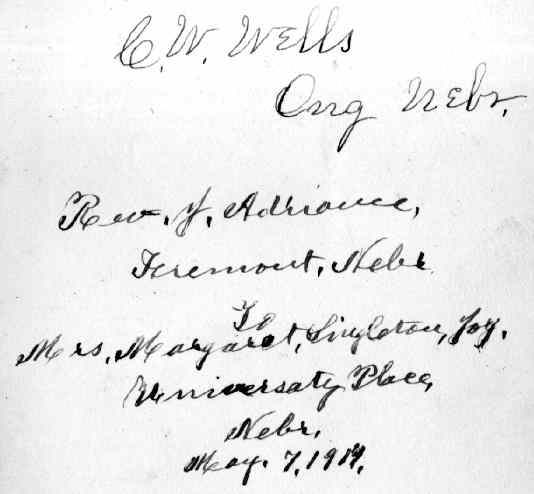 C. W. Wells
Ong Nebr.
Rev. J. Adriance,
Fremont, Nebr.
To
Mrs. Margaret, Singleton, Joy.
Universaty Place,
Nebr.
May. 7, 1917.